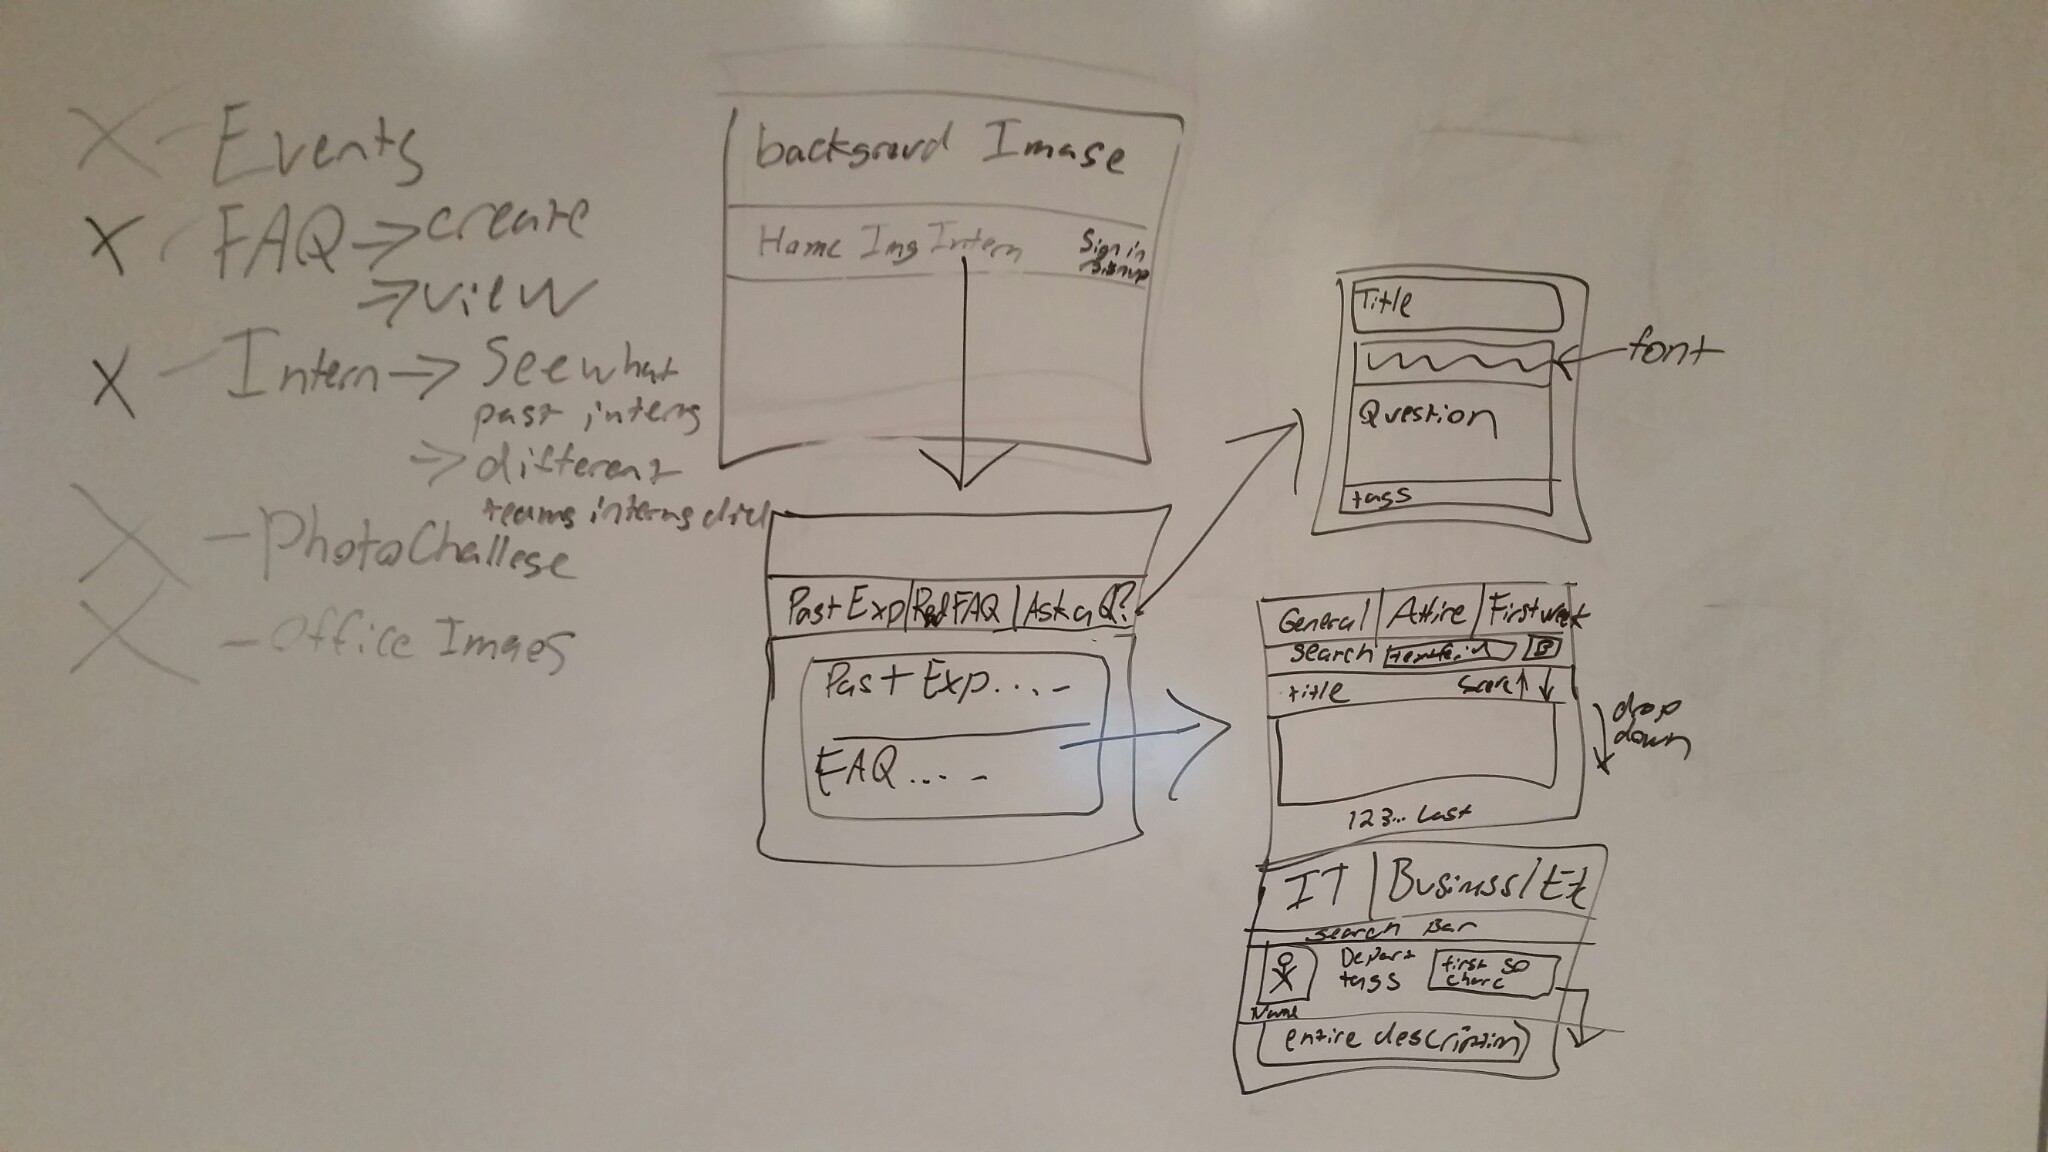 X - Events
X - FAQ -> create
-> view
X - Intern -> See what
past interns
-> different
teams interns did
X - Photo Challenge
X - Office Images
background Image
Home Img Intern
Sign in
Signup
Past Exp | Read FAQ | Ask a Q?
Past Exp....
FAQ....
Title
font
Question
tags
General | Attire | First week
search textfield B
title score ↑ ↓
drop
down
1 2 3... Last
IT | Business / Etc
search Bar
Depart
tags
first 50
charc
Name
entire description